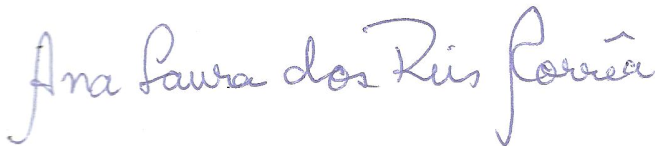 Ana Laura dos Reis Corrêa